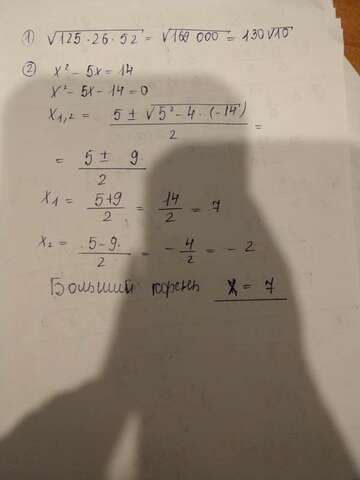 1) √125·26·52 = √169 000 = 130√10
2) x² − 5x = 14
x² − 5x − 14 = 0
x₁,₂ = (5 ± √5² − 4·(−14))/2 =
= (5 ± 9)/2
x₁ = (5+9)/2 = 14/2 = 7
x₂ = (5−9)/2 = −4/2 = −2
Больший корень x = 7